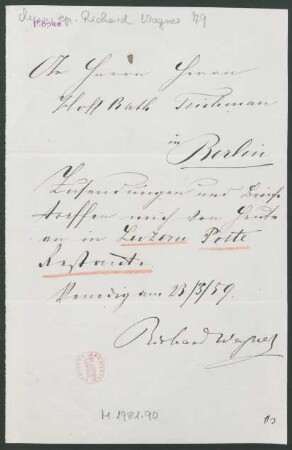 Mus. ep. Richard Wagner 79
Kopie
An Herrn Herrn
Hoff Rath Teichman
in
Berlin
Zusendungen und Briefe
treffen mich von Heute
an in Luzern Poste
Restante
Venedig am 23/3/59.
Richard Wagner
M 1981.90